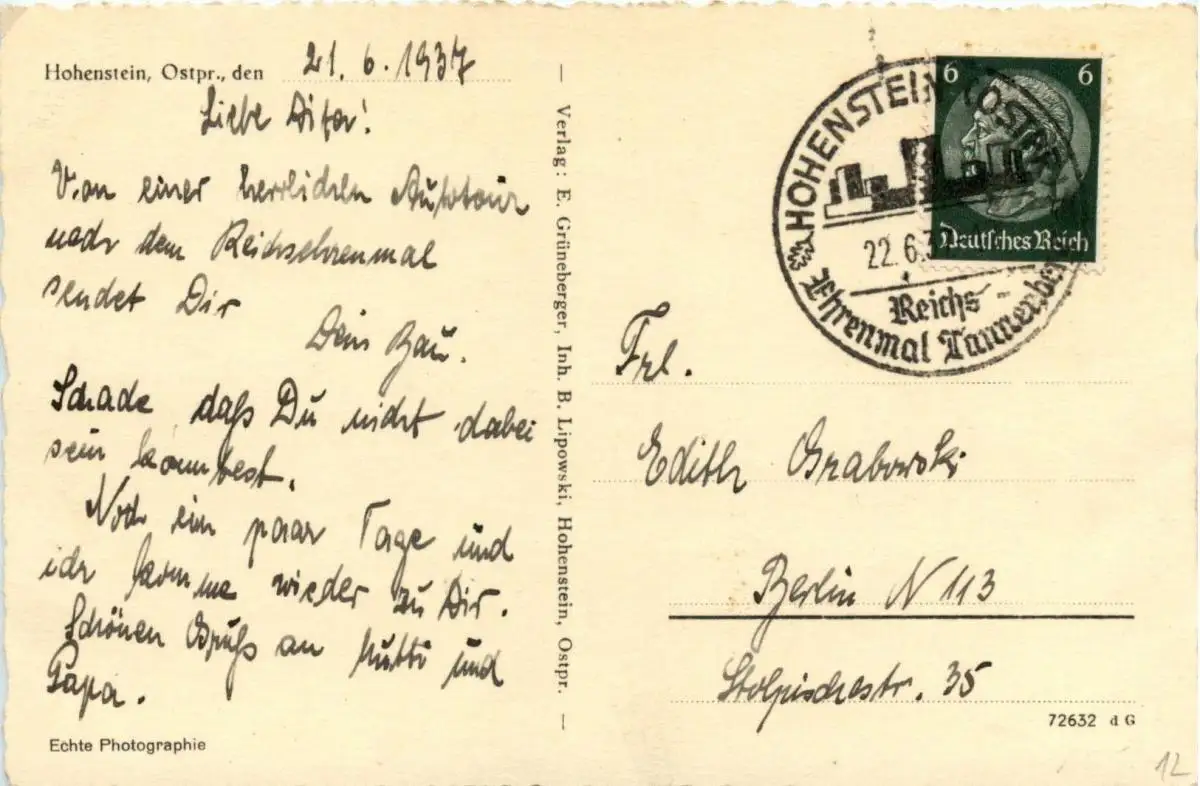 Hohenstein, Ostpr., den 21. 6. 1937
Liebe
Von einer herrlichen Autotour
nach dem Reichsehrenmal
sendet Dir
Dein
Schade, daß Du nicht dabei
sein konntest.
Noch ein paar Tage und
ich komme wieder zu Dir.
Schönen Gruß an Mutti und
Papa.
Echte Photographie
Verlag: E. Grüneberger, Inh. B. Lipowski, Hohenstein, Ostpr.
HOHENSTEIN (OSTPR)
22.6.3
Reichs-
Ehrenmal Tannenberg
6 6
Deutsches Reich
Frl.
Edith Grabowski
Berlin N 113
Stolpischestr. 35
72632 d G
12